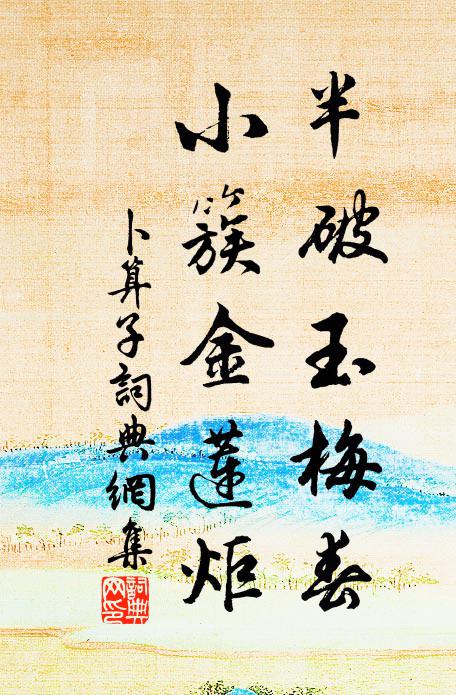 半破玉梅春
小簇金蓮炬
卜算子詞典網集
詞典網印